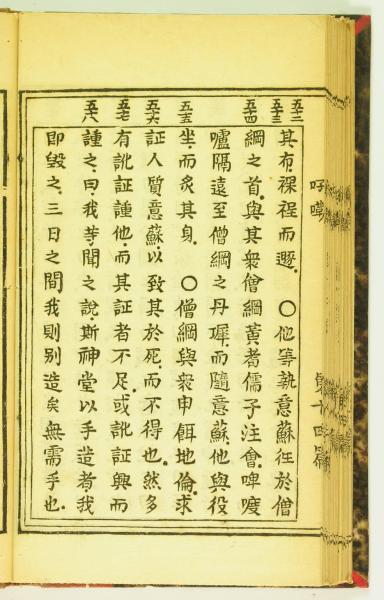 五十二
五十三
五十四
五十五
五十六
五十七
五十八
第十四篇
其布.裸裎而遯. 〇他等執意蘇徃於僧
綱之首.與其衆僧綱黃耆儒子注會.啤嘜
嚧隔遠至僧綱之丹墀.而隨意蘇.他與役
坐.而炙其身. 〇僧綱與衆申餌地倫.求
証人質意蘇.以致其於死.而不得也.然多
有訛証諥他.而其証者不足.或訛証興而
諥之.曰.我等聞之說.斯神堂以手造者.我
即毀之.三日之間我則别造矣.無需手也.